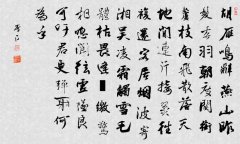 胡雁鳴辭燕山昨
發委羽朝度關銜
蘆枝南飛散落天
地間連行接翼往
復還客居煙波寄
湘吳凌霜觸雪毛
體枯畏逢繳驚
相呼聞弦虛墜良
可吁君更彈射何
為乎